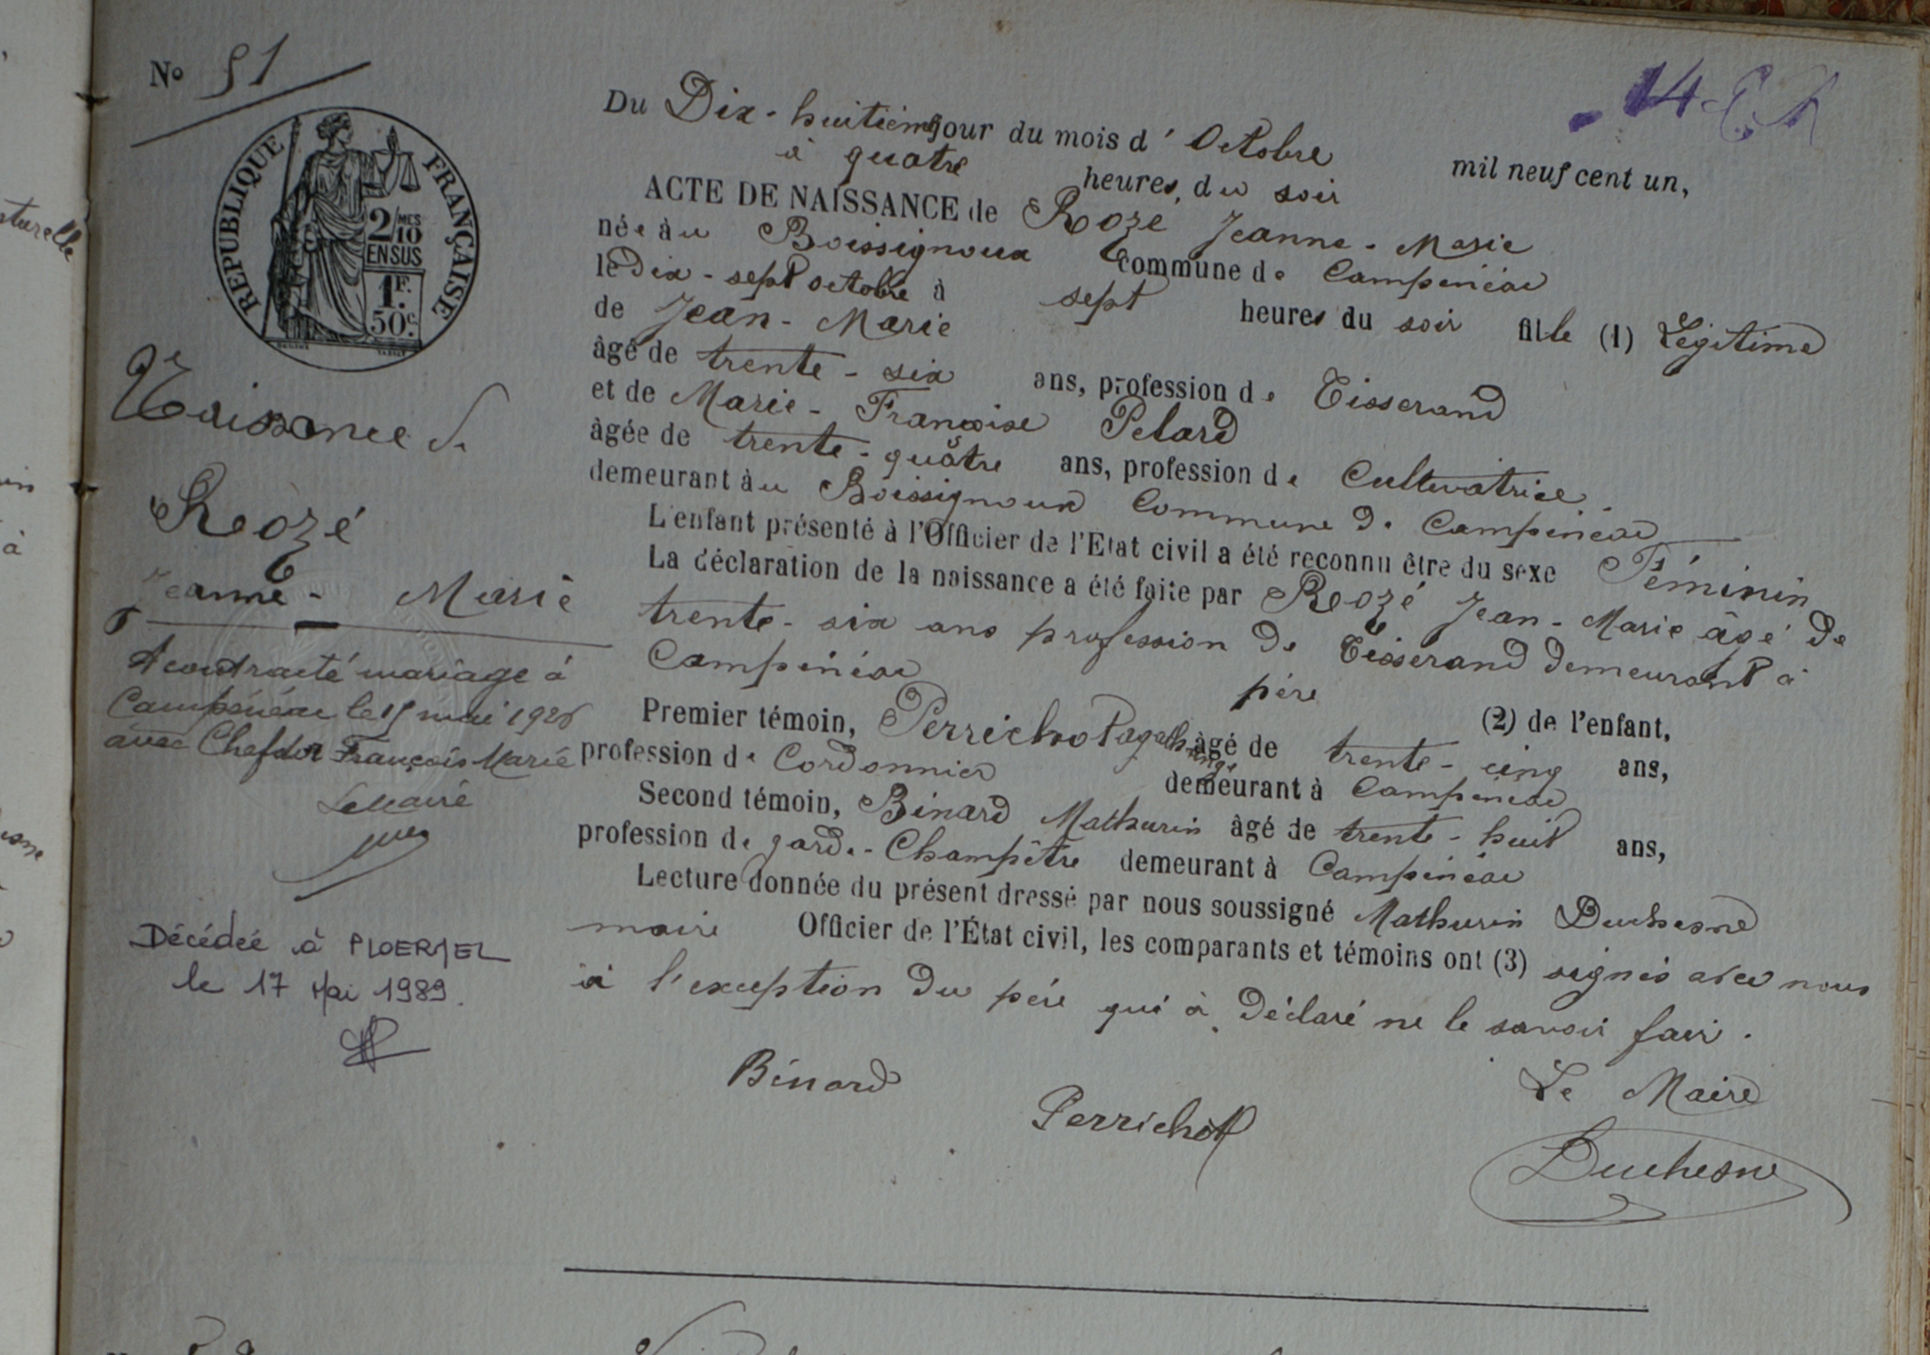 No 51
REPUBLIQUE FRANÇAISE
2/MES
10
EN SUS
1F.
50c.
Naissance de
Rozé
Jeanne - Marie
A contracté mariage à
Campénéac le 15 mai 1926
avec Chefdor François Marie
Le Maire
Décédée à PLOERMEL
le 17 Mai 1989.
Du Dix-huitième jour du mois d'Octobre mil neuf cent un,
à quatre heures du soir
ACTE DE NAISSANCE de Rozé Jeanne-Marie
née au Boissignoux commune de Campénéac
le dix-sept octobre à sept heures du soir fille (1) Légitime
de Jean-Marie
âgé de trente-six ans, profession de Tisserand
et de Marie-Françoise Pelard
âgée de trente-quatre ans, profession de Cultivatrice
demeurant au Boissignoux Commune de Campénéac
L'enfant présenté à l'Officier de l'Etat civil a été reconnu être du sexe Féminin
La déclaration de la naissance a été faite par Rozé Jean-Marie âgé de
trente-six ans profession de Tisserand demeurant à
Campénéac père (2) de l'enfant,
Premier témoin, Perrichot âgé de trente-cinq ans,
profession de Cordonnier demeurant à Campénéac
Second témoin, Binard Mathurin âgé de trente-huit ans,
profession de garde-Champêtre demeurant à Campénéac
Lecture donnée du présent dressé par nous soussigné Mathurin Duchesne
maire Officier de l'État civil, les comparants et témoins ont (3) signés avec nous
à l'exception du père qui à déclaré ne le savoir faire.
Binard
Perrichot
Le Maire
Duchesne